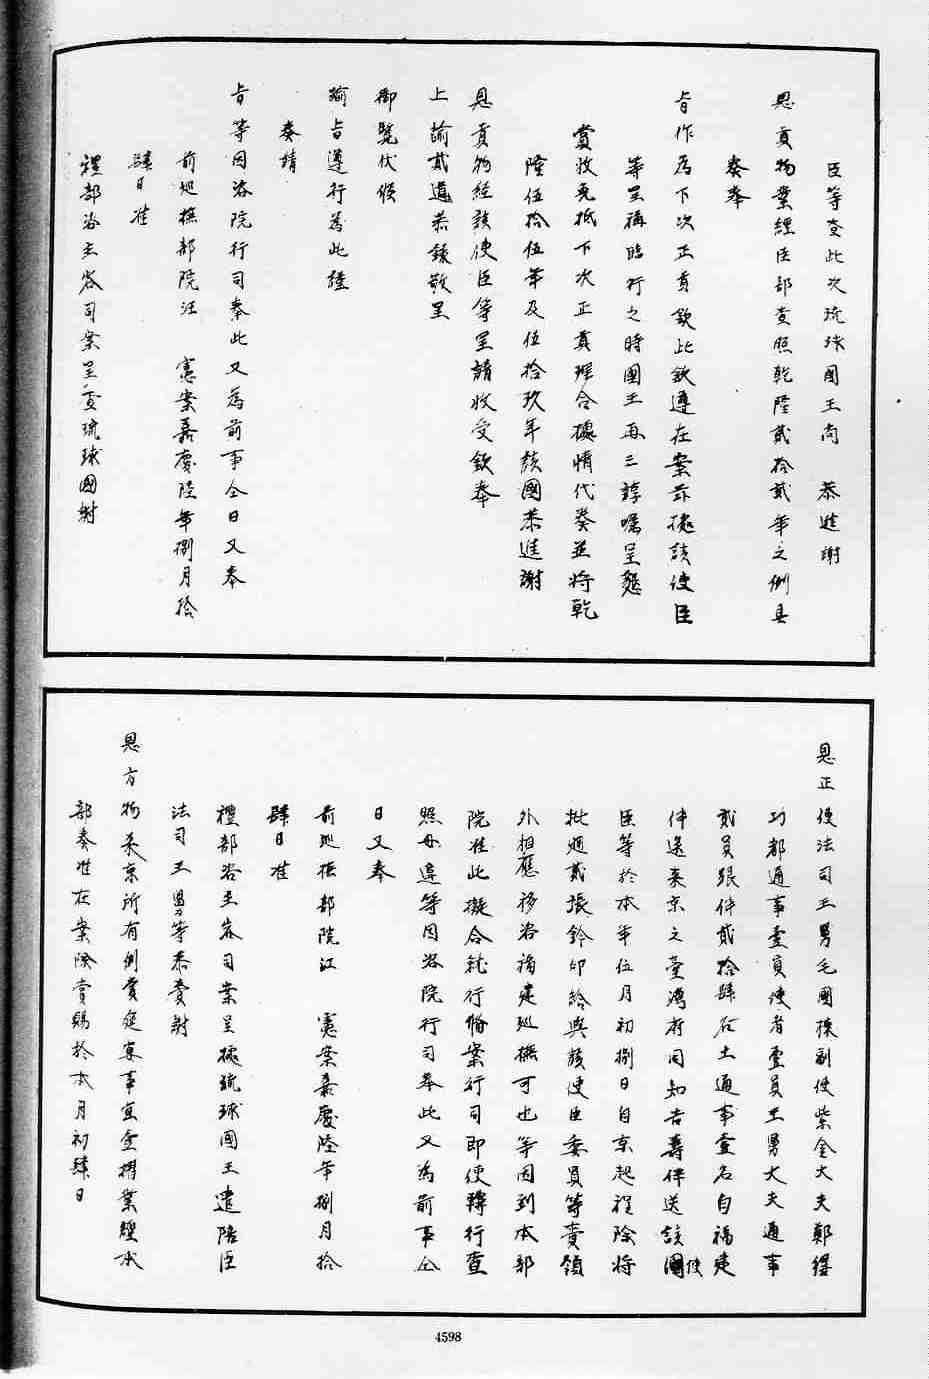 臣等查此次琉球國王尚　恭進謝
恩貢物業經臣部查照乾隆貳拾貳年之例具
奏奉
旨作為下次正貢欽此欽遵在案茲據該使臣
等呈稱臨行之時國王再三諄囑呈懇
賞收免抵下次正貢理合據情代奏並將乾
隆伍拾伍年及伍拾玖年該國恭進謝
恩貢物經該使臣等呈請收受欽奉
上諭貳道恭錄敬呈
御覽伏候
諭旨遵行為此謹
奏請
旨等因洛院行司奉此又為前事仝日又奉
前巡撫部院汪　憲案嘉慶陸年捌月拾
肆日准
禮部咨主客司案呈查琉球國謝
恩正使法司王舅毛國棟副使紫金大夫鄭得
功都通事壹員使者壹員王舅大夫通事
貳員跟伴貳拾肆名土通事壹名自福建
伴送來京之臺灣府同知吉壽伴送該國使
臣等於本年伍月初捌日自京起程除將
批迴貳張鈐印給與該使臣委員等賫領
外相應移咨福建巡撫可也等因到本部
院准此擬合就行備案行司即便轉行查
照毋違等因咨院行司奉此又為前事仝
日又奉
前巡撫部院江　憲案嘉慶陸年捌月拾
肆日准
禮部咨主客司案呈據琉球國王遣陪臣
法司王舅等恭賫謝
恩方物來京所有例賞筵宴事宜壹摺業經本
部奏准在案除賞賜於本月初肆日
4598